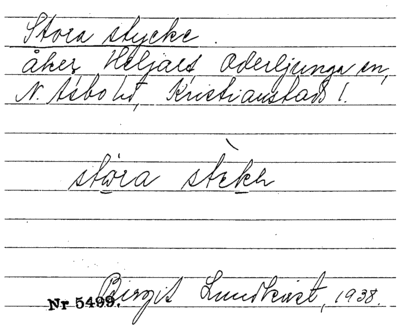 Stora stycke.
åker, Heljaes, Oderljunga sn,
N. Åsbo hd, Kristianstads l.
Birgit Lundkvist, 1938.
Nr 5499.